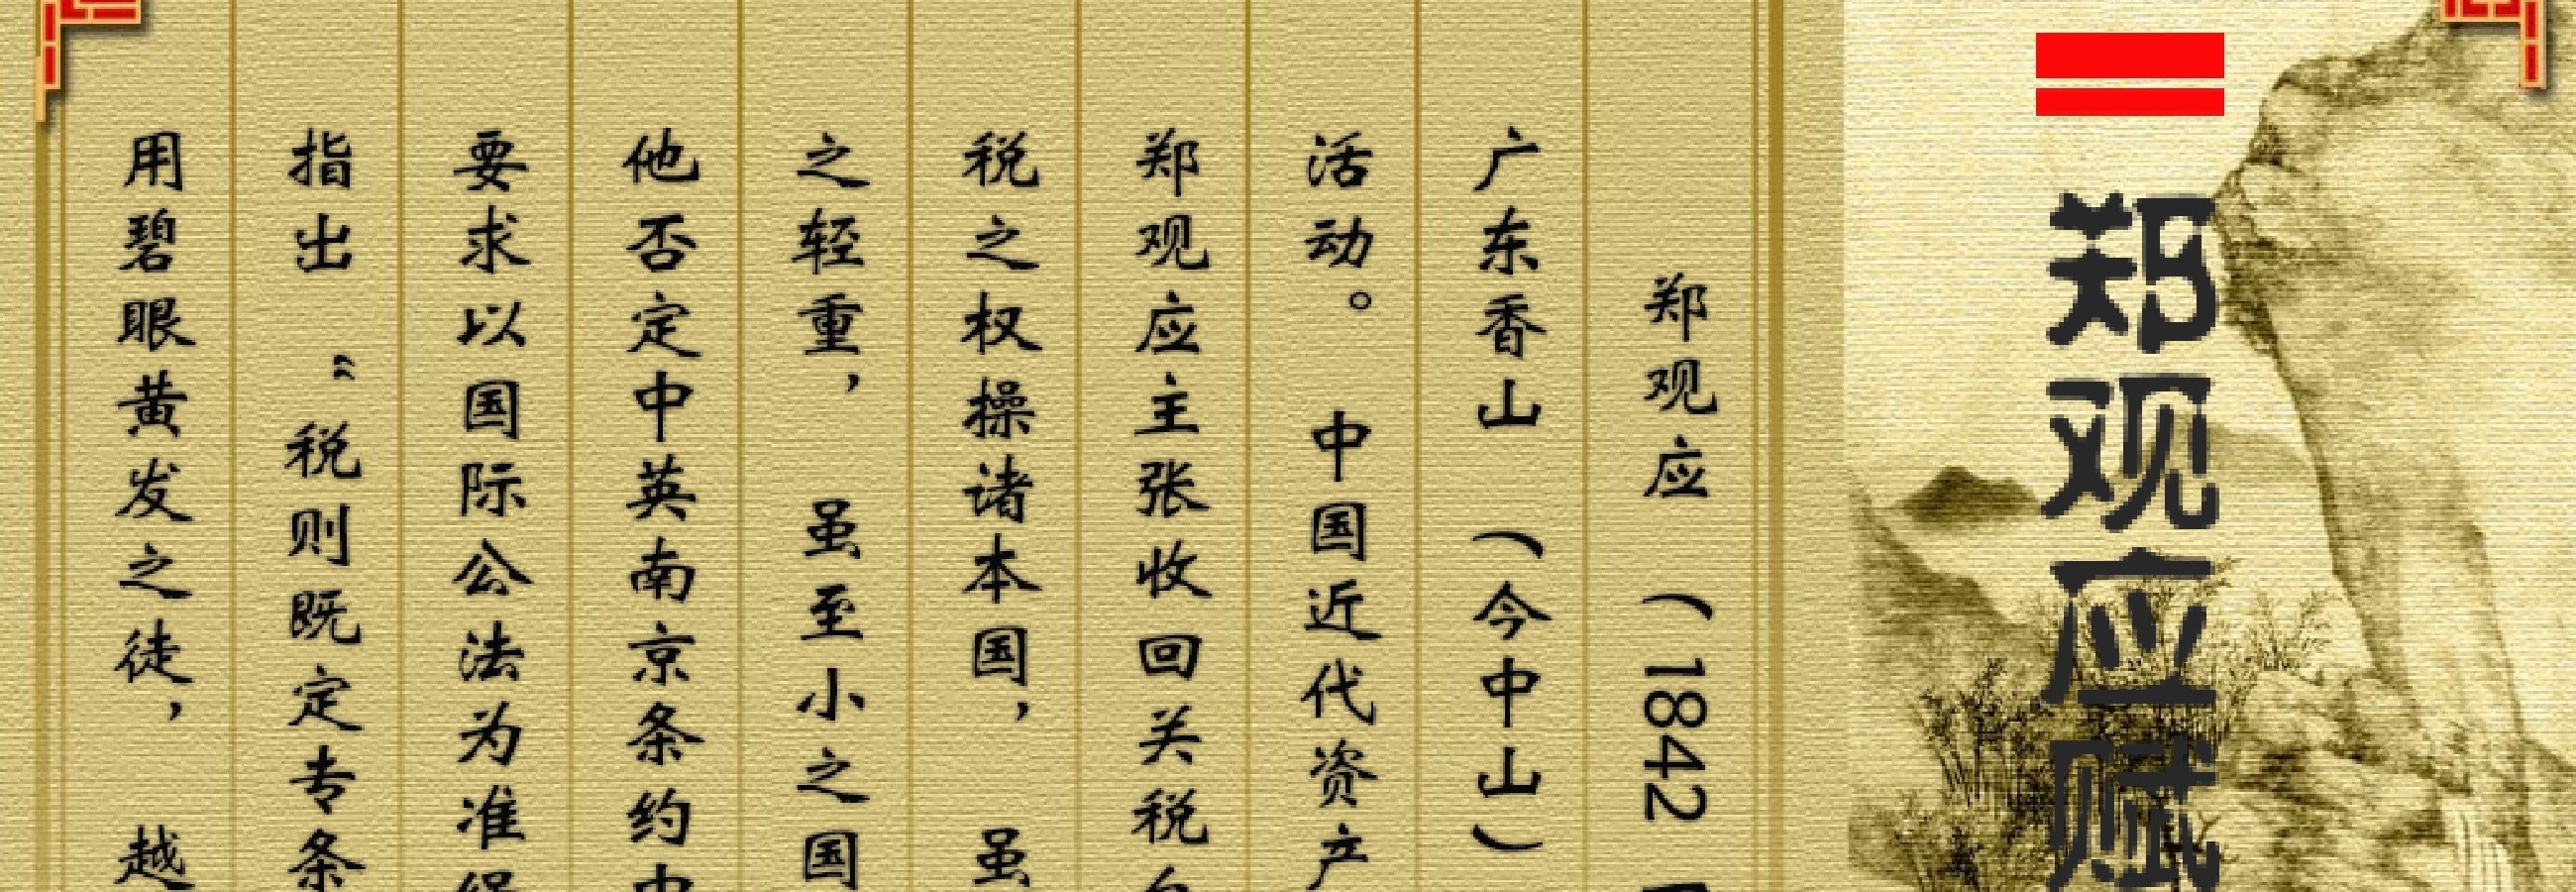 郑观应赋
郑观应（1842
广东香山（今中山）
活动。中国近代资产
郑观应主张收回关税
税之权操诸本国，虽
之轻重，虽至小之国
他否定中英南京条约
要求以国际公法为准
指出“税则既定专条
用碧眼黄发之徒，越